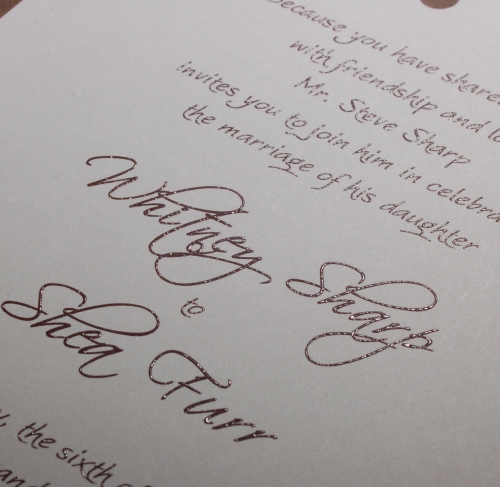 because you have share
with friendship and lo
Mr. Steve Sharp
invites you to join him in celebra
the marriage of his daughter
Whitney Sharp
to
Shea Furr
, the sixth
and